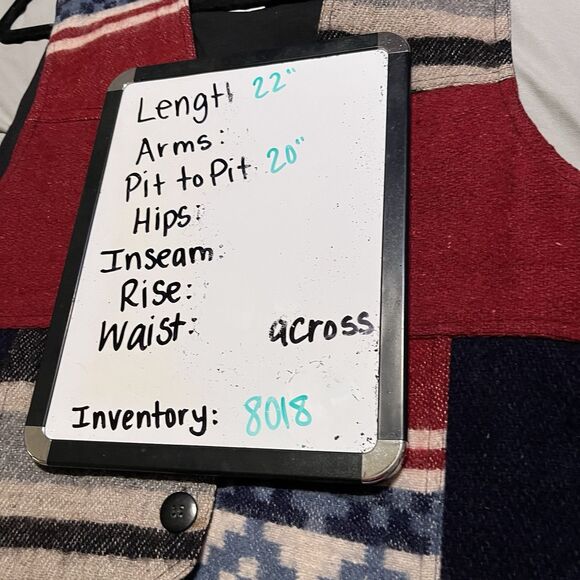 Lengtl 22"
Arms:
Pit to Pit 20"
Hips:
Inseam:
Rise:
Waist: across
Inventory: 8018